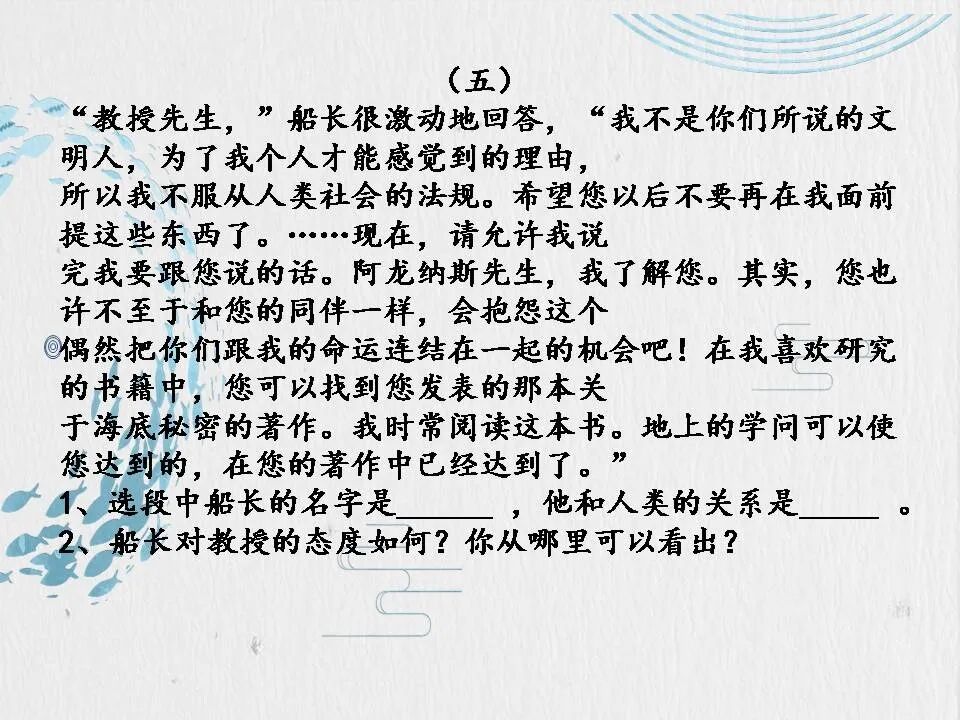 （五）
“教授先生，”船长很激动地回答，“我不是你们所说的文
明人，为了我个人才能感觉到的理由，
所以我不服从人类社会的法规。希望您以后不要再在我面前
提这些东西了。……现在，请允许我说
完我要跟您说的话。阿龙纳斯先生，我了解您。其实，您也
许不至于和您的同伴一样，会抱怨这个
偶然把你们跟我的命运连结在一起的机会吧！在我喜欢研究
的书籍中，您可以找到您发表的那本关
于海底秘密的著作。我时常阅读这本书。地上的学问可以使
您达到的，在您的著作中已经达到了。”
1、选段中船长的名字是______，他和人类的关系是_____。
2、船长对教授的态度如何？你从哪里可以看出？